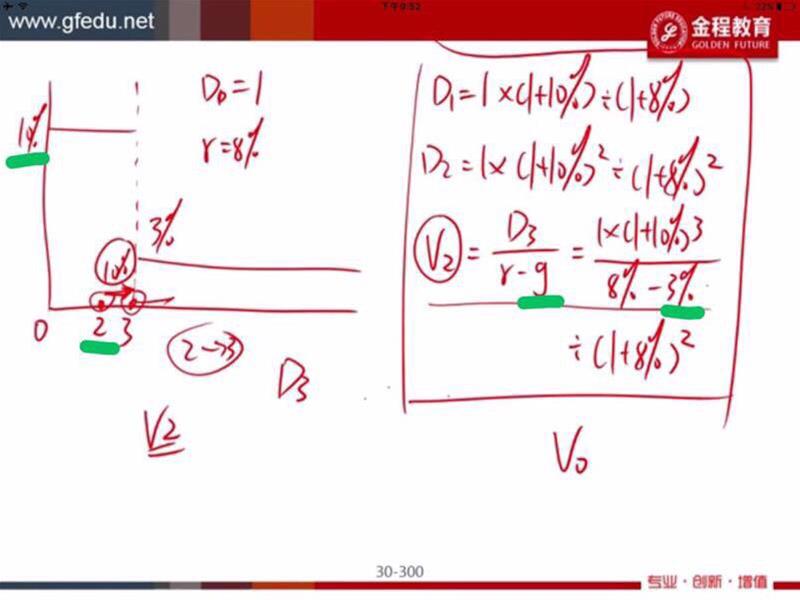 下午9:52
22%
www.gfedu.net
金程教育
GOLDEN FUTURE
D₀=1
r=8%
10%
3%
10%
0 2 3
2→3
D₃
V₂
D₁=1×(1+10%)÷(1+8%)
D₂=1×(1+10%)²÷(1+8%)²
V₂ = D₃/(r-g) = 1×(1+10%)3/(8%-3%)
÷(1+8%)²
V₀
30-300
专业·创新·增值